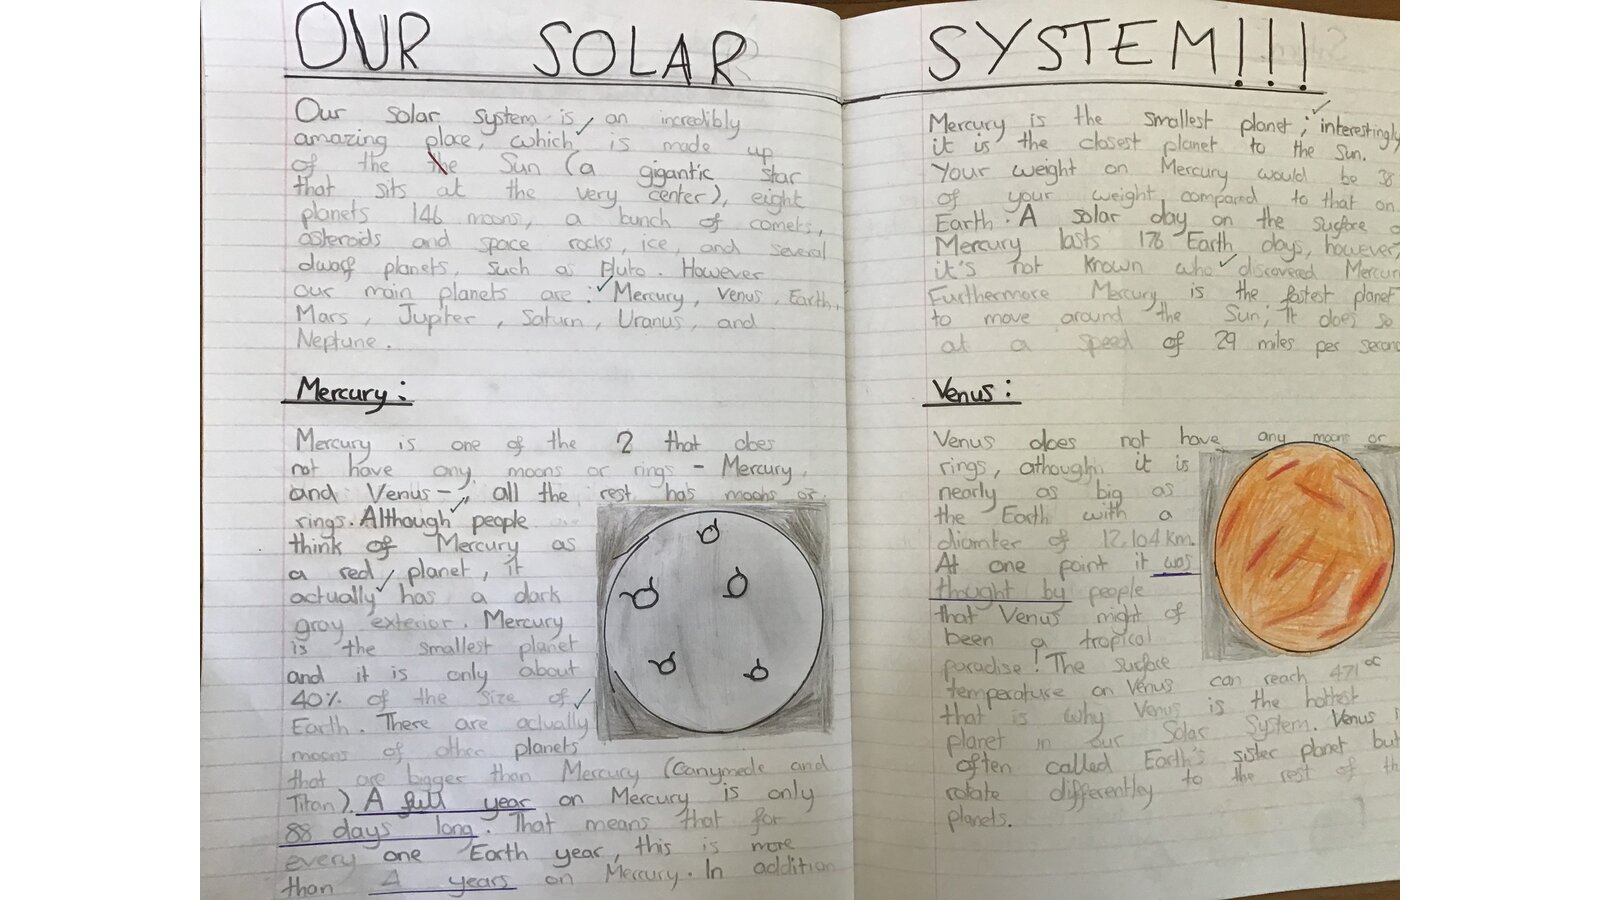 OUR SOLAR SYSTEM!!!
Our solar system is an incredibly
amazing place, which is made up
of the the Sun (a gigantic star
that sits at the very center), eight
planets 146 moons, a bunch of comets,
asteroids and space rocks, ice, and several
dwarf planets, such as Pluto. However
our main planets are: Mercury, Venus, Earth,
Mars, Jupiter, Saturn, Uranus, and
Neptune.
Mercury:
Mercury is one of the 2 that does
not have any moons or rings - Mercury
and Venus -, all the rest has moons or
rings. Although people
think of Mercury as
a red planet, it
actually has a dark
gray exterior. Mercury
is the smallest planet
and it is only about
40% of the size of
Earth. There are actually
moons of other planets
that are bigger than Mercury (Ganymede and
Titan). A full year on Mercury is only
88 days long. That means that for
every one Earth year, this is more
than 4 years on Mercury. In addition
Mercury is the smallest planet; interestingly
it is the closest planet to the Sun.
Your weight on Mercury would be 38
of your weight compared to that on
Earth. A solar day on the surface
Mercury lasts 176 Earth days, however,
it's not known who discovered Mercur
Furthermore Mercury is the fastest planet
to move around the Sun; It does so
at a speed of 29 miles per second
Venus:
Venus does not have any moons or
rings, athough it is
nearly as big as
the Earth with a
diamter of 12,104 km.
At one point it was
thought by people
that Venus might of
been a tropical
paradise! The surface
temperature on Venus can reach 471°C
that is why Venus is the hottest
planet in our Solar System. Venus
often called Earth's sister planet but
rotate differentley to the rest of th
planets.